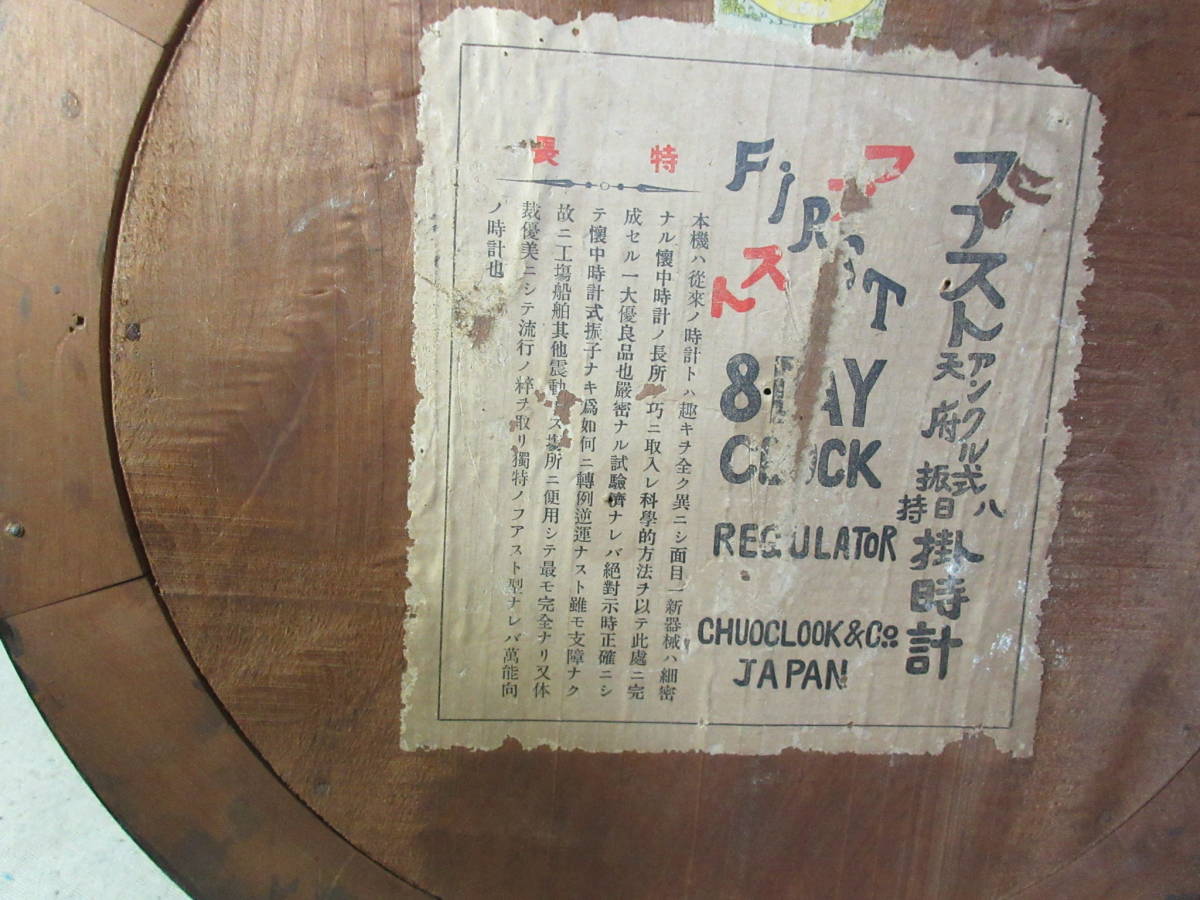 ファスト
アンクル式
天府振
八日持
掛時計
ファスト
FiRST
8DAY
CLOCK
REGULATOR
CHUOCLOOK&Co.
JAPAN
特長
本機ハ從來ノ時計トハ趣キヲ全ク異ニシ面目一新器械ハ細密
ナル懷中時計ノ長所 巧ニ取入レ科學的方法ヲ以テ此處ニ完
成セル一大優良品也嚴密ナル試驗濟ナレバ絕對示時正確ニシ
テ懷中時計式振子ナキ爲如何ニ轉例逆運ナスト雖モ支障ナク
故ニ工塲船舶其他震動 ス塲所ニ便用シテ最モ完全ナリ又体
裁優美ニシテ流行ノ粹ヲ取リ獨特ノフアスト型ナレバ萬能向
ノ時計也